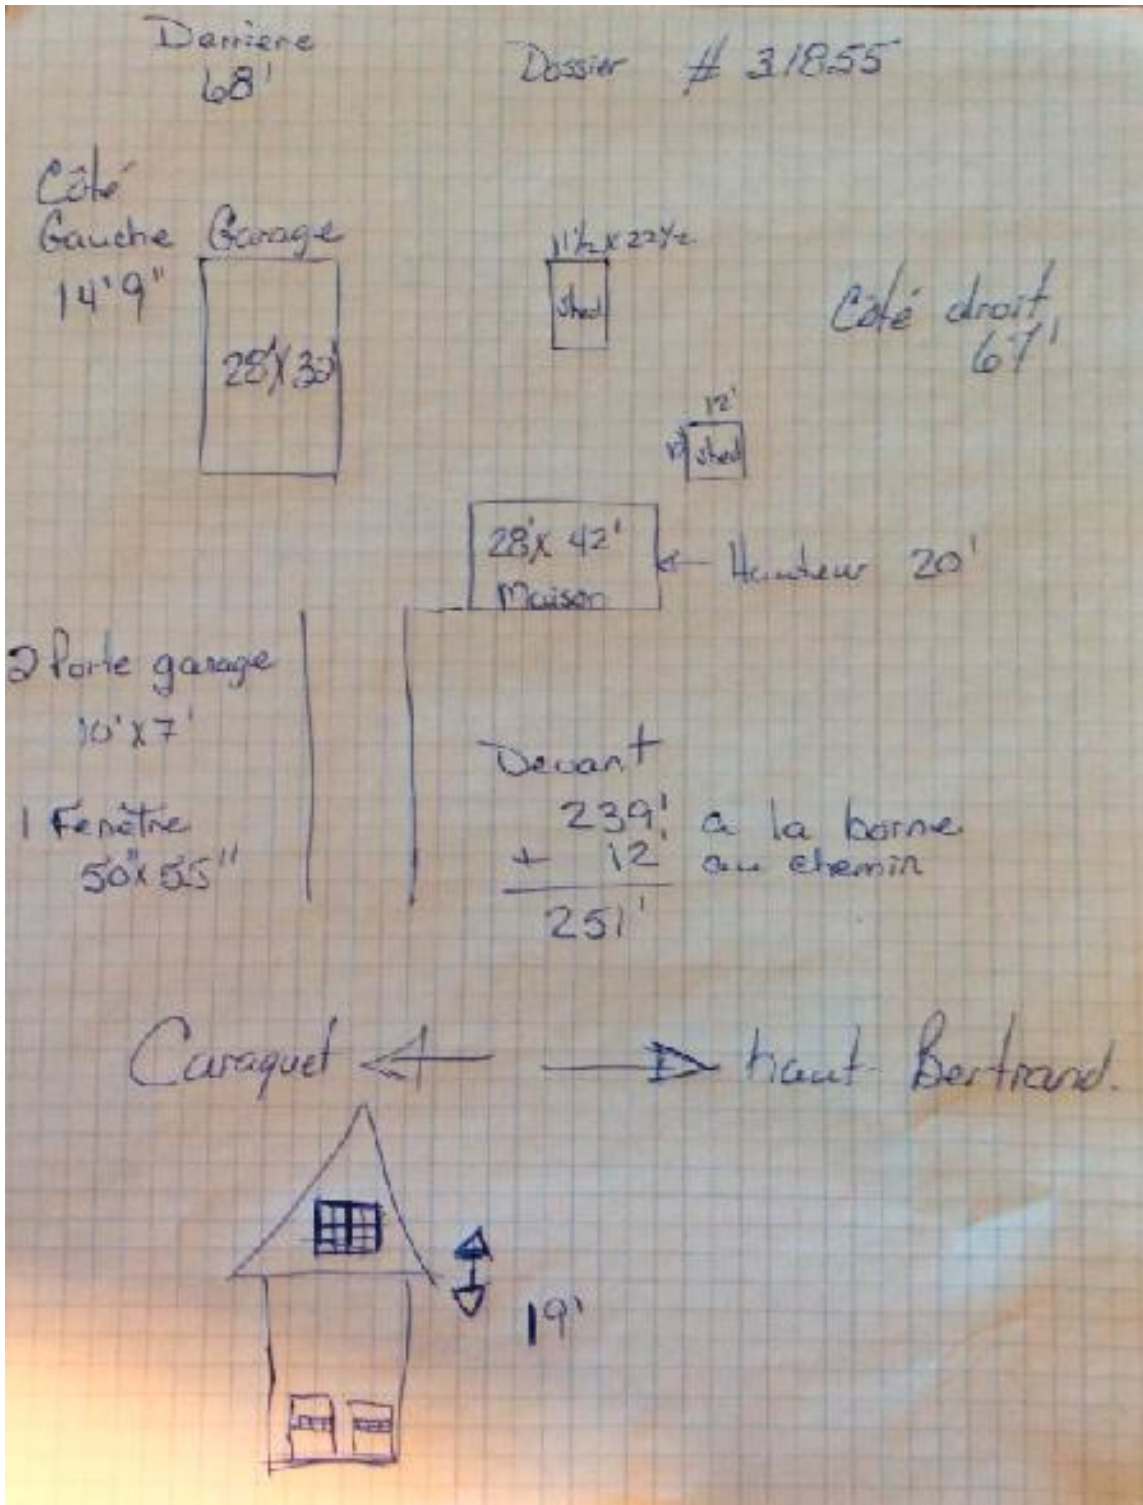 Derriere
68'
Dossier # 31855
Côté
Gauche
14'9"
Garage
28'X30'
11½ x 22½
shed
Côté droit
67'
12'
shed
28'x 42'
Maison
Hauteur 20'
2 Porte garage
10'X7'
1 Fenêtre
50"x55"
Devant
239' a la borne
+ 12' au chemin
251'
Caraquet
haut Bertrand.
19'